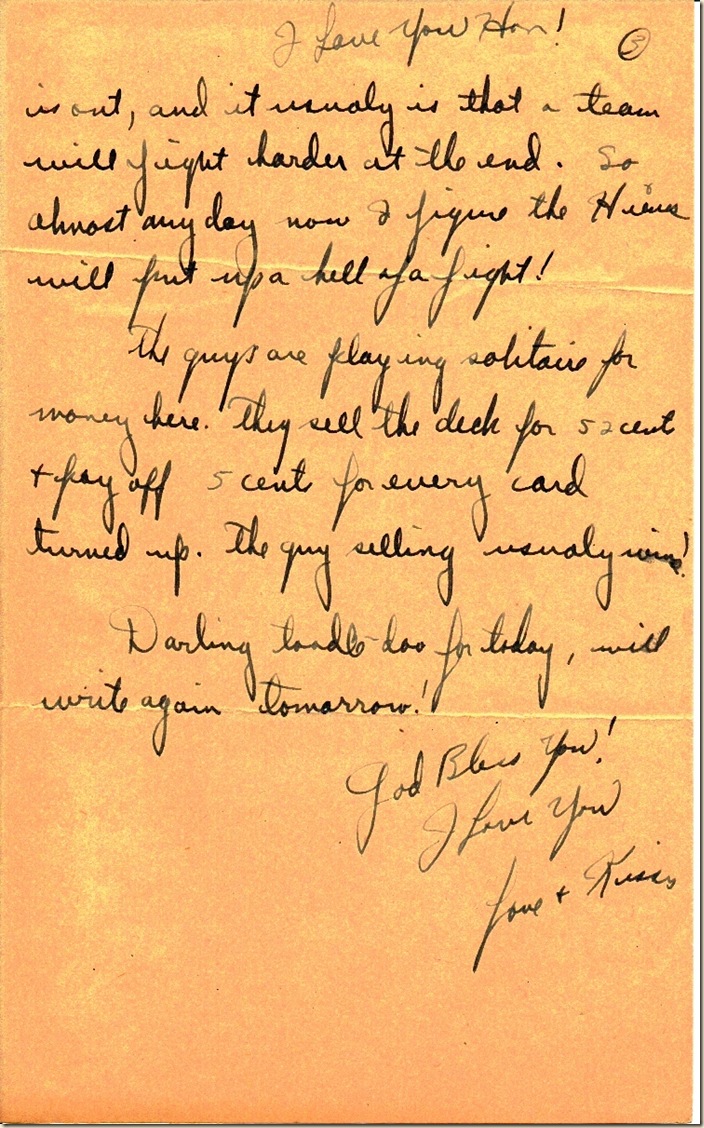 I Love You Hon!
3
is out, and it usualy is that a team
will fight harder at the end. So
almost any day now I figure the
will put up a hell of a fight!
The guys are playing solitaire for
money here. They sell the deck for 52 cents
+ pay off 5 cents for every card
turned up. The guy selling usualy wins!
Darling toodle-doo for today, will
write again tomorrow!
God Bless You!
I Love You
Love + Kisses